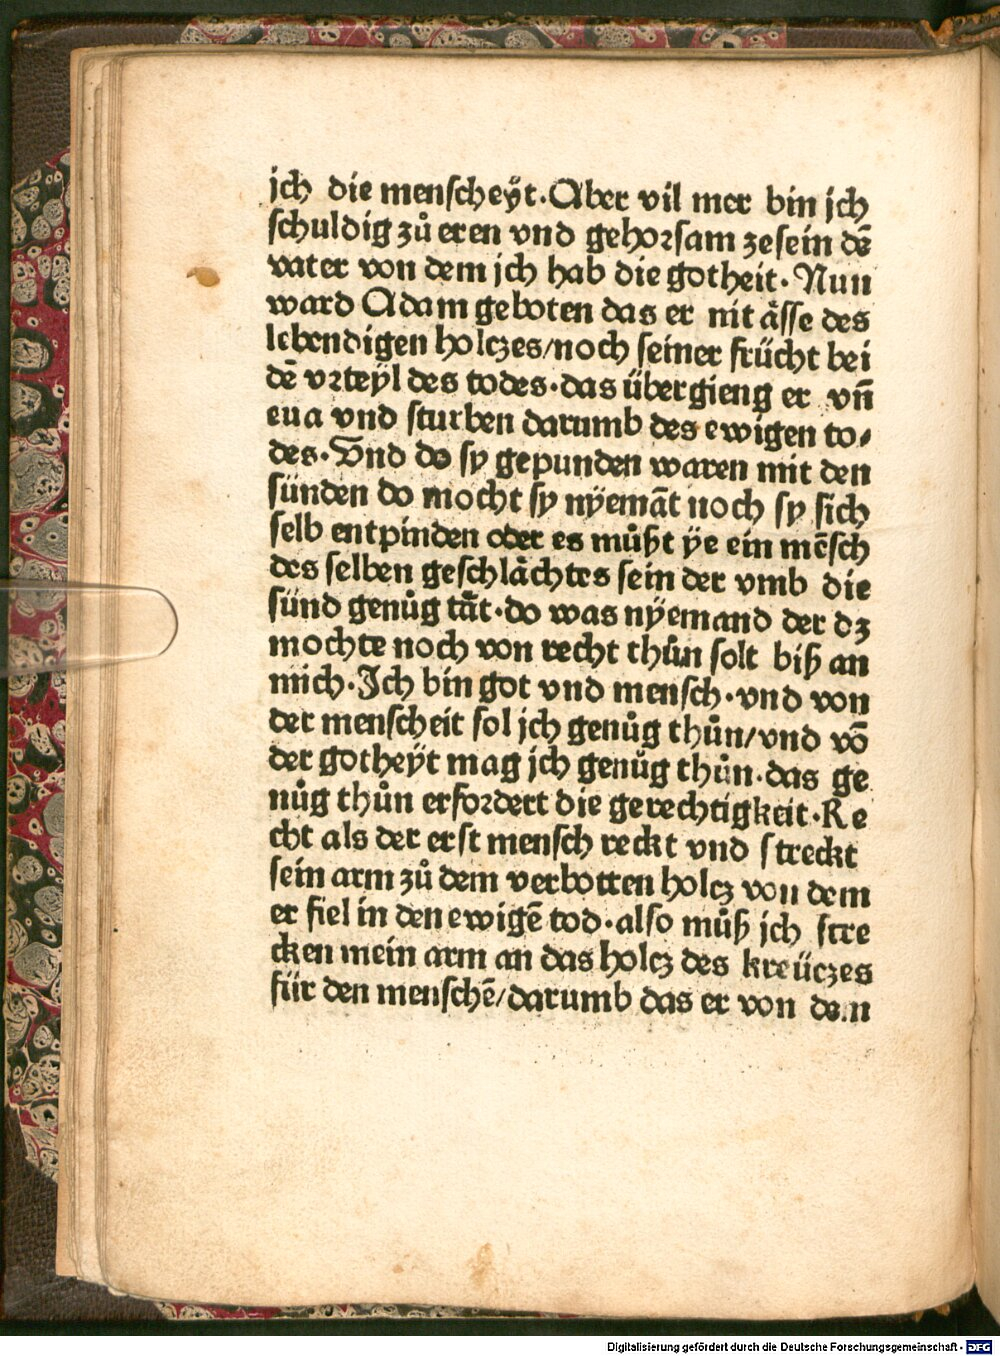 jch die menscheÿt·Aber vil mer bin jch
schuldig zů eren vnd gehoꝛsam zesein dē
vater von dem jch hab die gotheit·Nun
ward Adam geboten das er nit ässe des
lebendigen holczes/noch seiner frücht bei
dē vꝛteÿl des todes·das übergieng er vn̄
eua vnd sturben darumb des ewigen to⸗
des·Vnd do sy gepunden waren mit den
sünden do mocht sy nÿemāt noch sy sich
selb entpinden oder es můßt ÿe ein mēsch
des selben geschlächtes sein der vmb die
sünd genůg tät·do was nÿemand der dz
mochte noch von recht thůn solt biß an
mich·Ich bin got vnd mensch·vnd von
der menscheit sol jch genůg thůn/vnd vō
der gotheÿt mag jch genůg thůn·das ge
nůg thůn erfoꝛdert die gerechtigkeit·Re
cht als der erst mensch reckt vnd streckt
sein arm zů dem verbotten holcz von dem
er fiel in den ewigē tod·also můß jch stre
cken mein arm an das holcz des kreüczes
für den menschē/darumb das er von dem
Digitalisierung gefördert durch die Deutsche Forschungsgemeinschaft - DFG